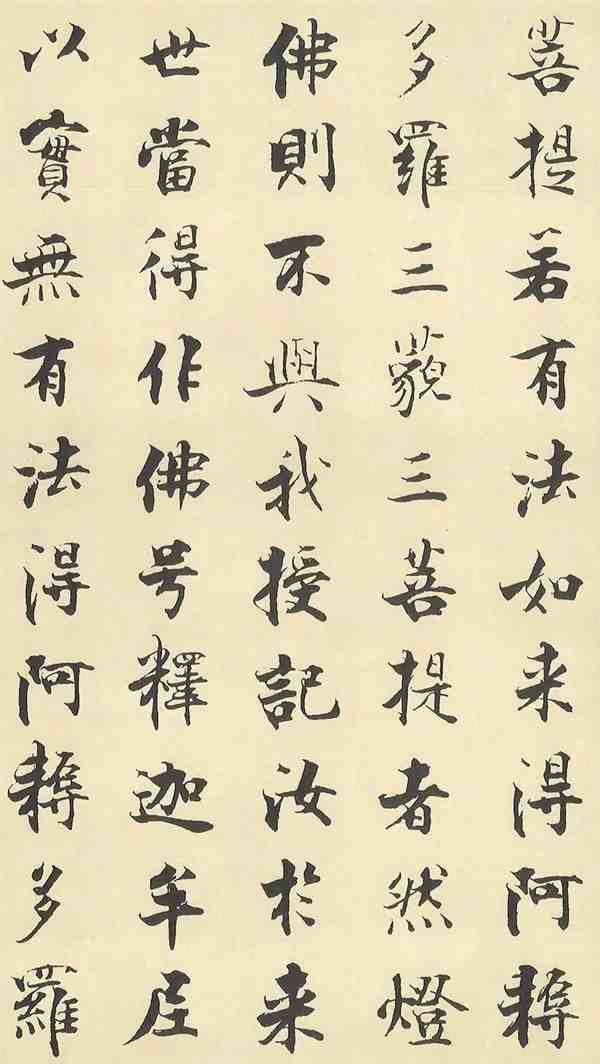 菩提若有法如来得阿耨
多羅三藐三菩提者然燈
佛則不與我授記汝於来
世當得作佛号釋迦牟尼
以實無有法得阿耨多羅